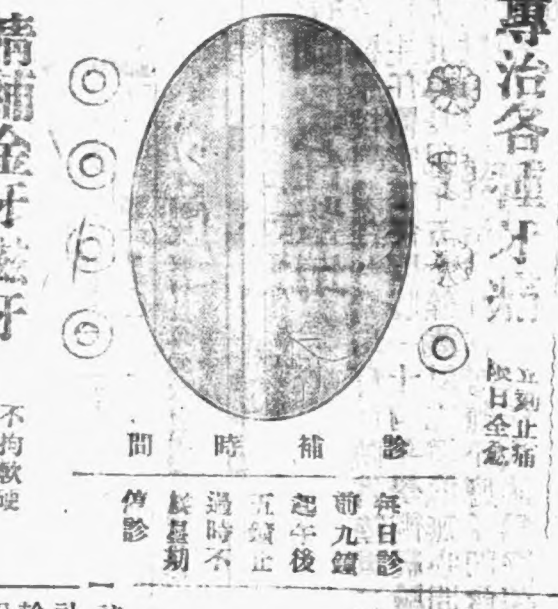 專治各種牙
立刻止痛
限日全愈
診補時間
每日診
前九鐘
起午後
五鐘止
過時不
星期
停診
補金牙磁牙
不拘軟硬